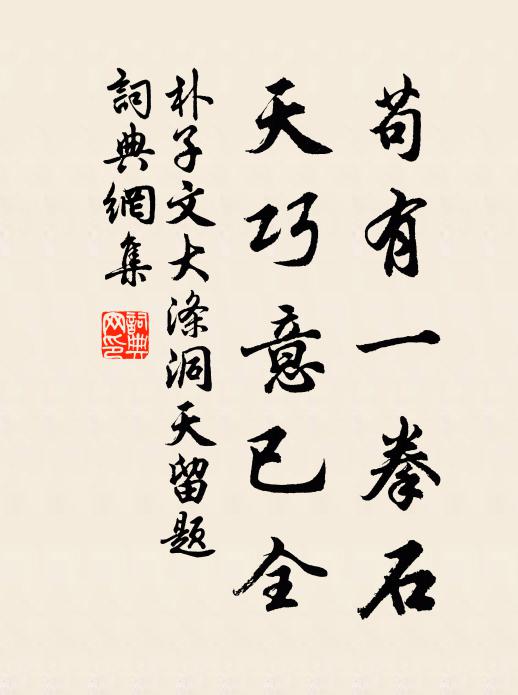 苟有一拳石
天巧意已全
朴子文大滌洞天留题
詞典網集
詞典
网印